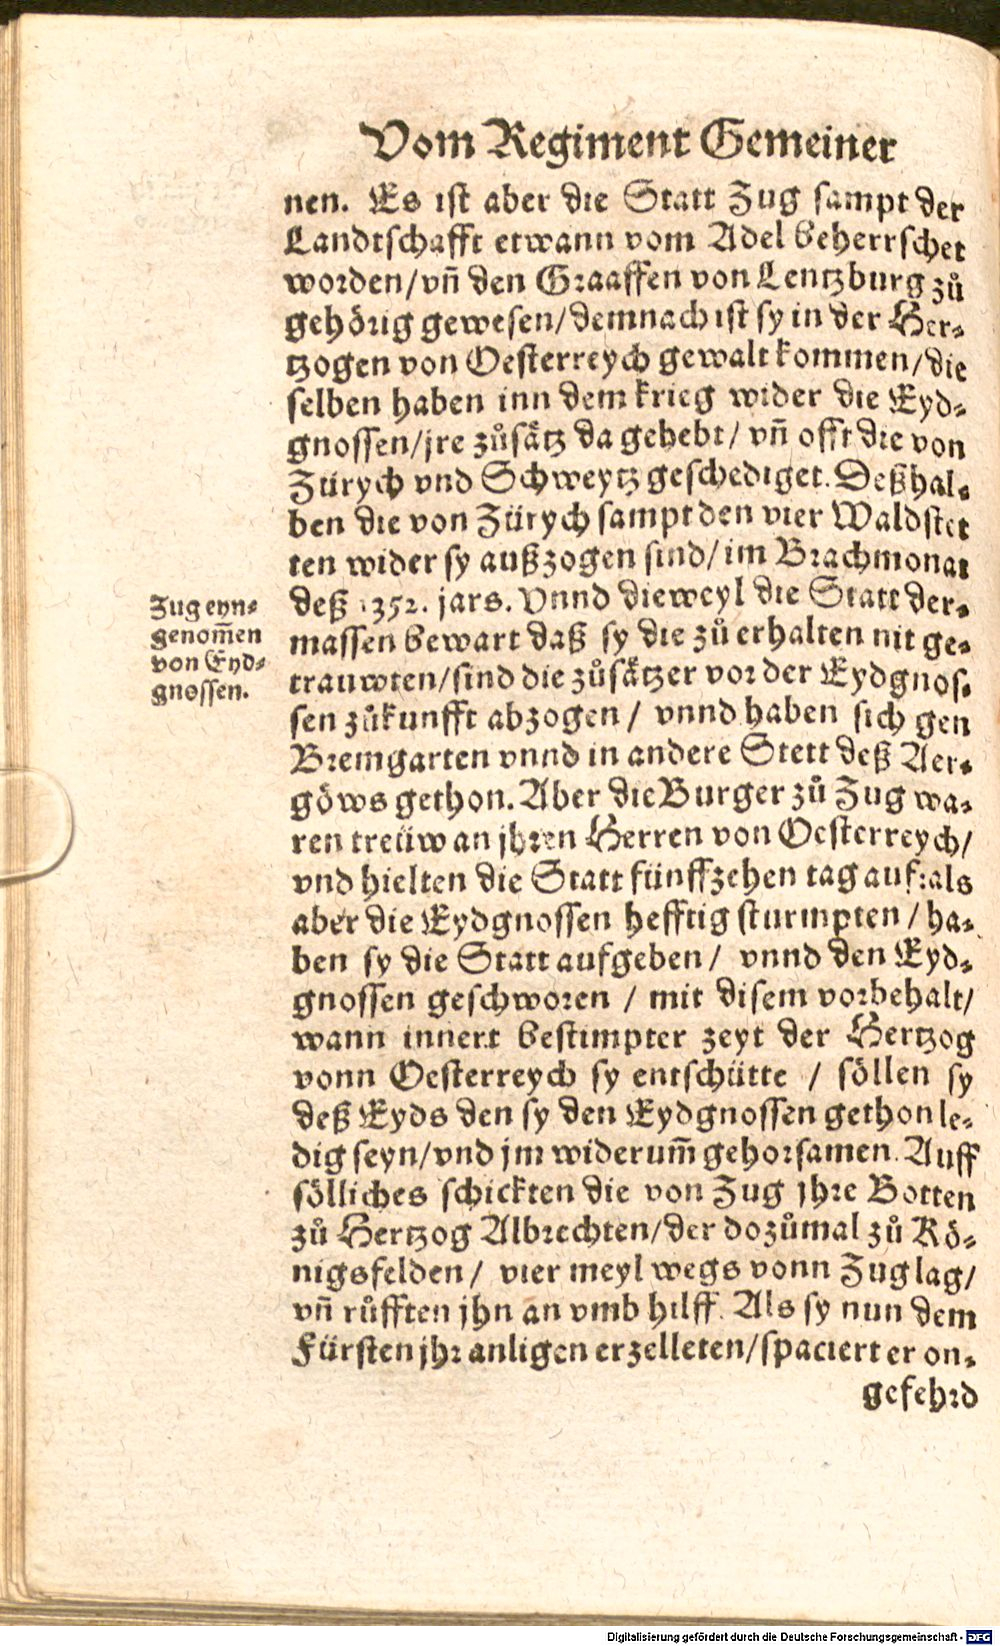 Vom Regiment Gemeiner
nen. Es ist aber die Statt Zug sampt der
Landtschafft etwann vom Adel beherrschet
worden/vñ den Graaffen von Lentzburg zů
gehörig gewesen/demnach ist sy in der Her-
tzogen von Oesterreych gewalt kommen/die
selben haben inn dem krieg wider die Eyd-
gnossen/jre zůsätz da gehebt/ vñ offt die von
Zürych vnd Schweytz geschediget. Deßhal-
ben die von Zürych sampt den vier Waldstet
ten wider sy außzogen sind/im Brachmonat
deß 1352. jars. Vnnd dieweyl die Statt der-
massen bewart daß sy die zů erhalten nit ge-
trauwten/sind die zůsätzer vor der Eydgnos-
sen zůkunfft abzogen/ vnnd haben sich gen
Bremgarten vnnd in andere Stett deß Aer-
göws gethon. Aber die Burger zů Zug wa-
ren treüw an jhren Herren von Oesterreych/
vnd hielten die Statt fünffzehen tag auf:als
aber die Eydgnossen hefftig sturmpten/ha-
ben sy die Statt aufgeben/ vnnd den Eyd-
gnossen geschworen / mit disem vorbehalt/
wann innert bestimpter zeyt der Hertzog
vonn Oesterreych sy entschütte / söllen sy
deß Eyds den sy den Eydgnossen gethon le-
dig seyn/vnd jm widerum̃ gehorsamen. Auff
sölliches schickten die von Zug jhre Botten
zů Hertzog Albrechten/der dozůmal zů Kö-
nigsfelden/ vier meyl wegs vonn Zug lag/
vñ růfften jhn an vmb hilff. Als sy nun dem
Fürsten jhr anligen erzelleten/spaciert er on-
gefehrd
Zug eyn-
genom̃en
von Eyd-
gnossen.
Digitalisierung gefördert durch die Deutsche Forschungsgemeinschaft - DFG